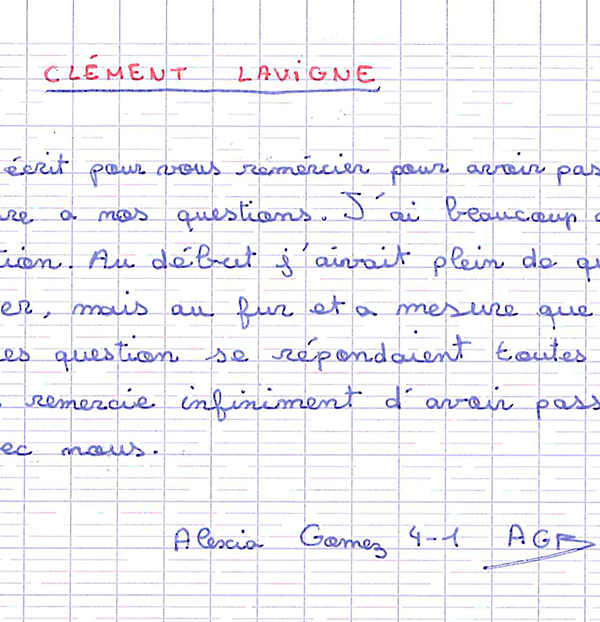 CLÉMENT LAVIGNE
écrit pour vous remércier pour avoir pas
re a nos questions. J'ai beaucoup
tion. Au début j'aivait plein de qu
er, mais au fur et a mesure que
es question se répondaient toutes
remercie infiniment d'avoir pass
ec nous.
Alexia Gomez 4-1 AGF